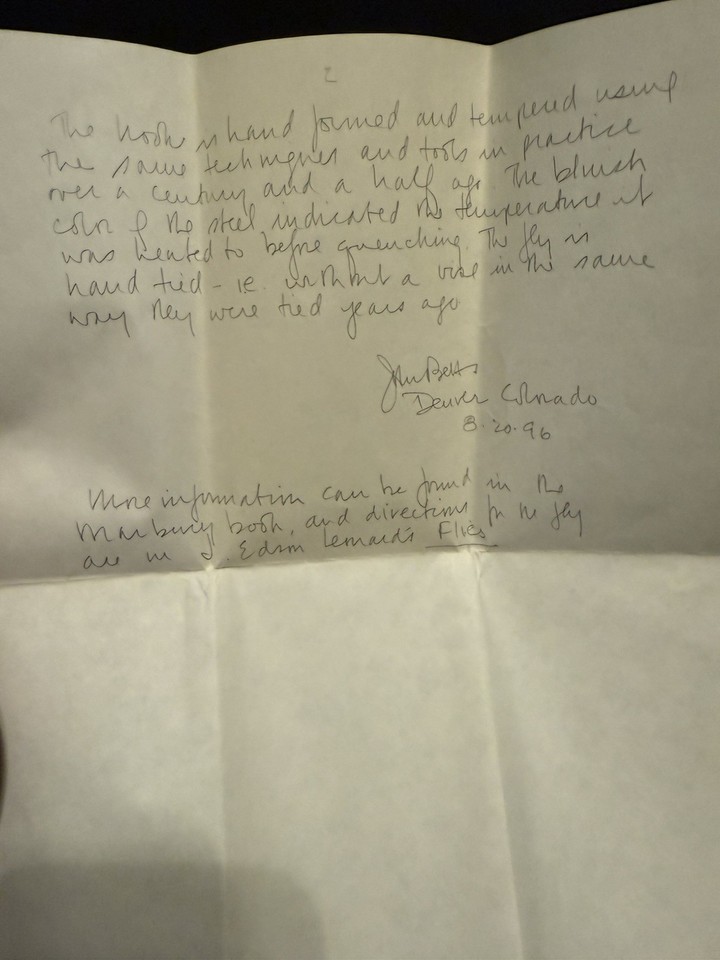 2
The hook is hand formed and tempered using
the same techniques and tools in practice
over a century and a half ago. The bluish
color of the steel indicated the temperature it
was heated to before quenching. The fly is
hand tied - ie. without a vise in the same
way they were tied years ago
John Betts
Denver Colorado
8.20.96
More information can be found in the
Marbury book, and directions for the fly
are in J. Edson Leonard's Flies